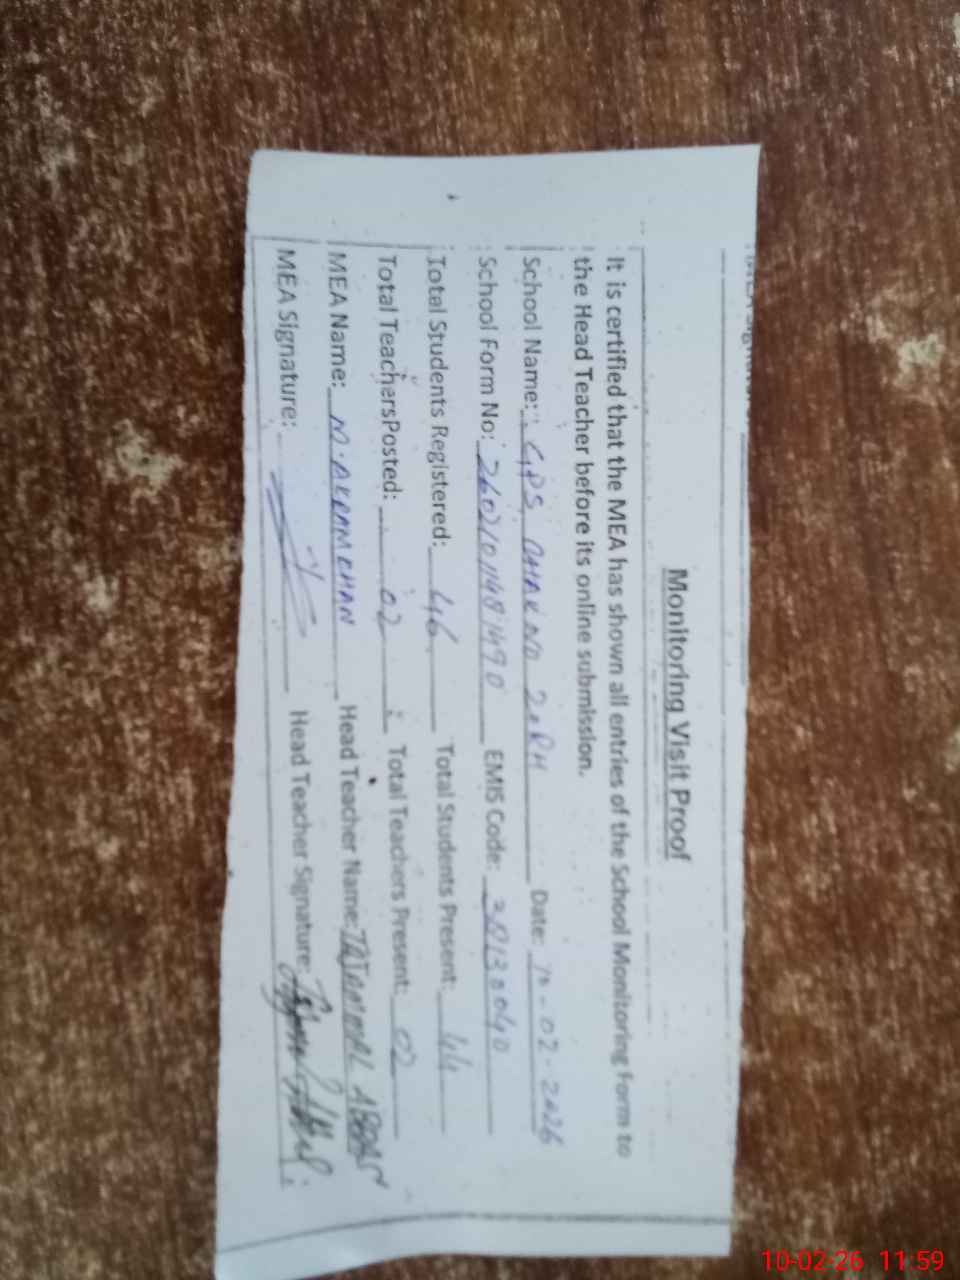 Monitoring Visit Proof
It is certified that the MEA has shown all entries of the School Monitoring Form to
the Head Teacher before its online submission.
School Name: GPS CHAK NO 20RH Date: 10-02-2026
School Form No: EMIS Code:
Total Students Registered: 46 Total Students Present: 44
Total TeachersPosted: 02 Total Teachers Present: 02
MEA Name: M. Head Teacher Name: ABBAS
MEA Signature: Head Teacher Signature:
10-02-26 11:59